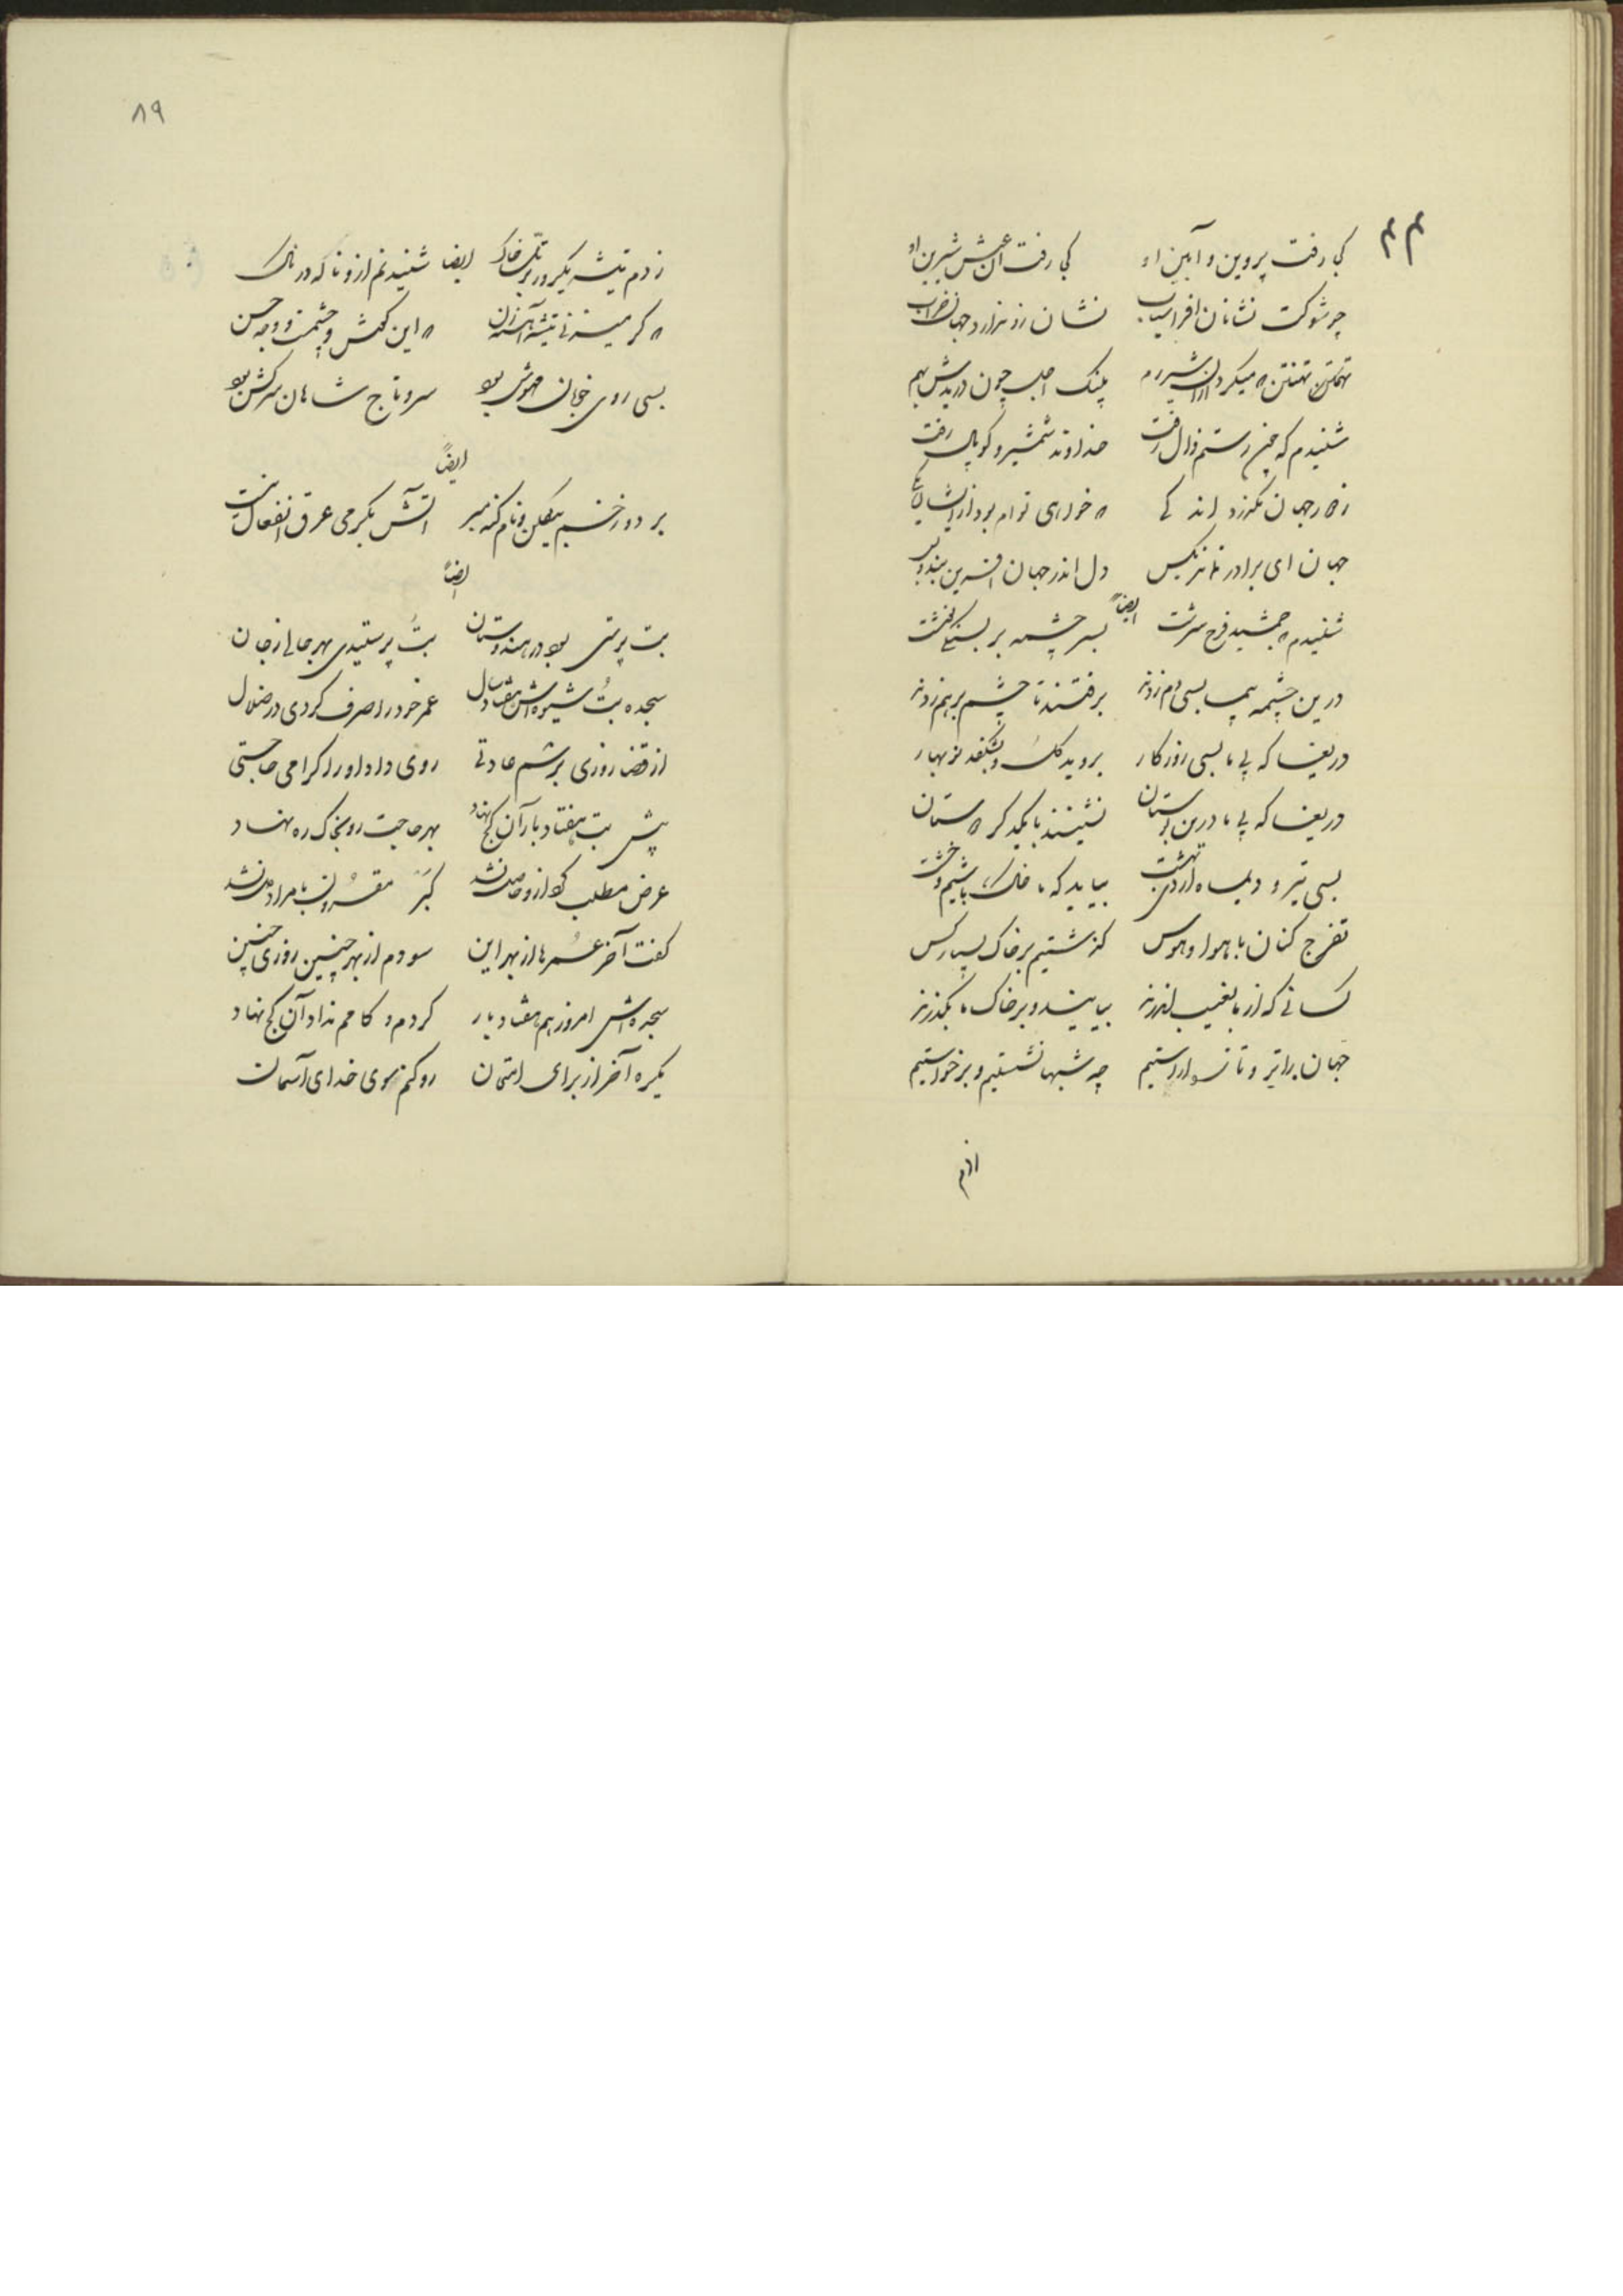 کجا رفت پروین و آیین او کجا رفت آن عیش شیرین او
چو شوکت نشانان افراسیاب نشان زو ندارد جهان خراب
تهمتن تهمتن که میکرد ازان شیر رم پلنگ اجل چون دریدش بهم
شنیدم که چون رستم زال رفت خداوند شمشیر و کوپال رفت
جهان نگذرد اندکی که خواهی تو ام بود ازایشان یکی
جهان ای برادر نماند بکس دل اندر جهان آفرین بند و بس
ایضاً
شنیدم که جمشید فرخ سرشت بسر چشمه بر بسنگی نوشت
درین چشمه چون ما بسی دم زدند برفتند تا چشم برهم زدند
دریغا که بی ما بسی روزگار بروید گل و بشکفد نوبهار
دریغا که بی ما درین بوستان نشینند با یکدگر دوستان
بسی تیر و دیماه و اردیبهشت بیاید که ما خاک باشیم و خشت
تفرج کنان با هوا و هوس گذشتیم بر خاک بسیار کس
کسانی که از ما بغیب اندرند بیایند و بر خاک ما بگذرند
جهان برابر و تا نسو اراستیم چه شبها نشستیم و برخواستیم
زدم
۸۹
زدم تیشه یکروز بر تل خاک ایضا شنیدنم ازو ناله دردناک
که گر میزنی تیشه آهسته زن که این گوش و چشمت و وجه حسن
بسی روی خوبان مهوش بود سر و تاج شاهان سرکش بود
ایضاً
بر دوزخم بیفکن و نام گنه مبر آتش بگرمی عرق انفعال نیست
ایضاً
بت پرستی بود در هندوستان بت پرستیدی بهر جا از جان
سجده بت شیوه‌اش هفتاد سال عمر خود را صرف کردی در ضلال
از قضا روزی برسم عادتی روی داد او را گرامی حاجتی
پیش بت هفتاد بار آن کج نهاد بهر حاجت رو بخاک ره نهاد
عرض مطلب کرد ازو حاصل نشد گبر مقرون با مراد دل نشد
گفت آخر عمرها از بهر این سودم از بهر چنین روزی جبین
سجده‌اش امروز هم هفتاد بار کردم و کامم نداد آن کج نهاد
یکره آخر از برای امتحان رو کنم سوی خدای آسمان